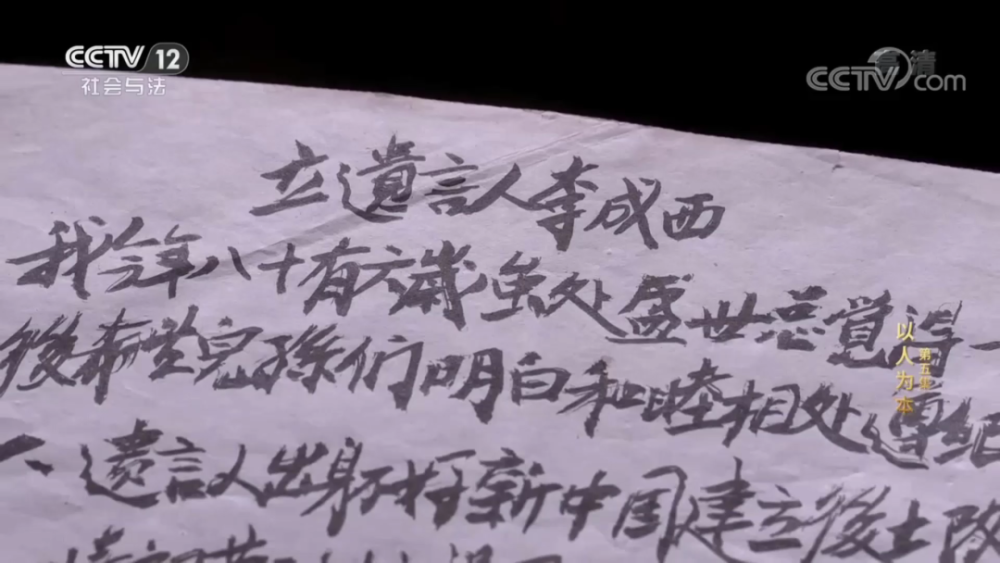 CCTV 12
社会与法
高清
CCTV.com
立遗言人李成西
我今年八十有六歲虽处盛世总觉得一
後希望兒孫们明白和睦相处團结
一、遗言人出身不好新中国建立後土改
以人为本
第五集